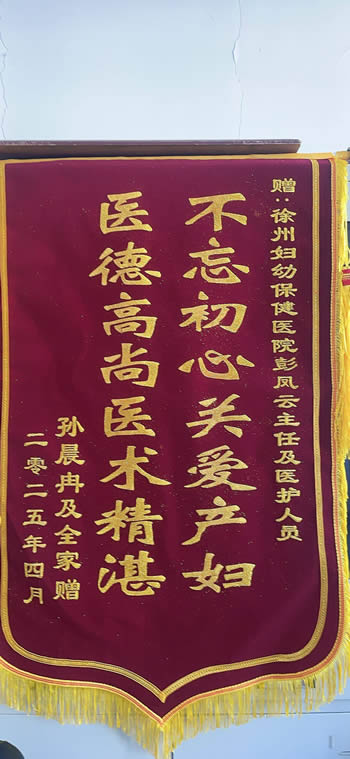 赠：徐州妇幼保健医院彭凤云主任及医护人员
不忘初心关爱产妇
医德高尚医术精湛
孙晨冉及全家赠
二零二五年四月